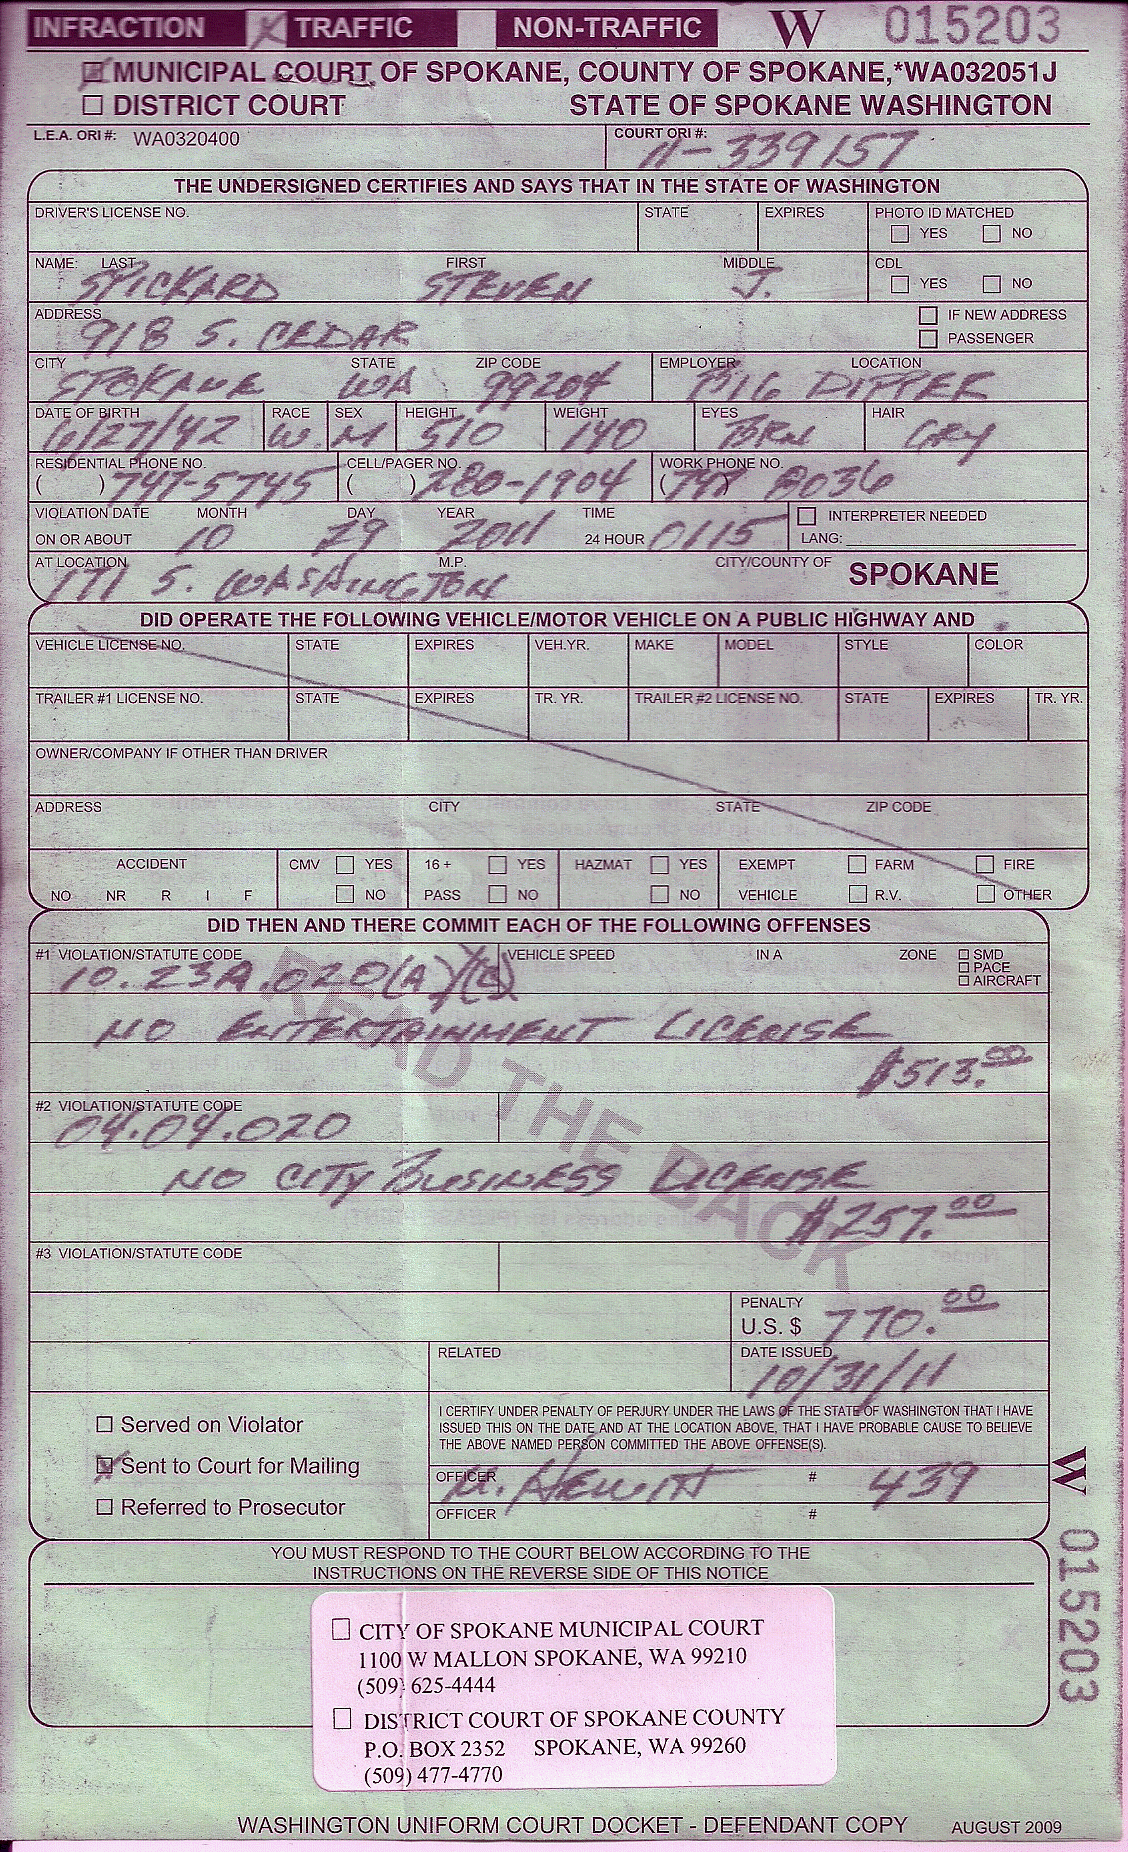 INFRACTION X TRAFFIC NON-TRAFFIC W 015203
MUNICIPAL COURT OF SPOKANE, COUNTY OF SPOKANE,*WA032051J
DISTRICT COURT STATE OF SPOKANE WASHINGTON
L.E.A. ORI #: WA0320400 COURT ORI #: 11-339157
THE UNDERSIGNED CERTIFIES AND SAYS THAT IN THE STATE OF WASHINGTON
DRIVER'S LICENSE NO. STATE EXPIRES PHOTO ID MATCHED
YES NO
NAME: LAST FIRST MIDDLE CDL
SPICKARD STEVEN J. YES NO
ADDRESS IF NEW ADDRESS
918 S. CEDAR PASSENGER
CITY STATE ZIP CODE EMPLOYER LOCATION
SPOKANE WA 99204 BIG DIPPER
DATE OF BIRTH RACE SEX HEIGHT WEIGHT EYES HAIR
6/27/42 W. M 510 140 BRN GRY
RESIDENTIAL PHONE NO. CELL/PAGER NO. WORK PHONE NO.
( ) 747-5745 ( ) 280-1904 (747) 8036
VIOLATION DATE MONTH DAY YEAR TIME INTERPRETER NEEDED
ON OR ABOUT 10 29 2011 24 HOUR 0115 LANG:
AT LOCATION M.P. CITY/COUNTY OF SPOKANE
171 S. WASHINGTON
DID OPERATE THE FOLLOWING VEHICLE/MOTOR VEHICLE ON A PUBLIC HIGHWAY AND
VEHICLE LICENSE NO. STATE EXPIRES VEH.YR. MAKE MODEL STYLE COLOR
TRAILER #1 LICENSE NO. STATE EXPIRES TR. YR. TRAILER #2 LICENSE NO. STATE EXPIRES TR. YR.
OWNER/COMPANY IF OTHER THAN DRIVER
ADDRESS CITY STATE ZIP CODE
ACCIDENT CMV YES 16 + YES HAZMAT YES EXEMPT FARM FIRE
NO NR R I F NO PASS NO NO VEHICLE R.V. OTHER
DID THEN AND THERE COMMIT EACH OF THE FOLLOWING OFFENSES
#1 VIOLATION/STATUTE CODE VEHICLE SPEED IN A ZONE SMD
PACE
AIRCRAFT
10.23A.020(A)(C)
NO ENTERTAINMENT LICENSE
$513.00
READ THE BACK
#2 VIOLATION/STATUTE CODE
04.04.020
NO CITY BUSINESS LICENSE
$257.00
#3 VIOLATION/STATUTE CODE
PENALTY
U.S. $ 770.00
RELATED DATE ISSUED
10/31/11
Served on Violator
Sent to Court for Mailing
Referred to Prosecutor
I CERTIFY UNDER PENALTY OF PERJURY UNDER THE LAWS OF THE STATE OF WASHINGTON THAT I HAVE
ISSUED THIS ON THE DATE AND AT THE LOCATION ABOVE, THAT I HAVE PROBABLE CAUSE TO BELIEVE
THE ABOVE NAMED PERSON COMMITTED THE ABOVE OFFENSE(S).
OFFICER M. Hewitt # 439
OFFICER #
W 015203
YOU MUST RESPOND TO THE COURT BELOW ACCORDING TO THE
INSTRUCTIONS ON THE REVERSE SIDE OF THIS NOTICE
CITY OF SPOKANE MUNICIPAL COURT
1100 W MALLON SPOKANE, WA 99210
(509) 625-4444
DISTRICT COURT OF SPOKANE COUNTY
P.O. BOX 2352 SPOKANE, WA 99260
(509) 477-4770
WASHINGTON UNIFORM COURT DOCKET - DEFENDANT COPY AUGUST 2009